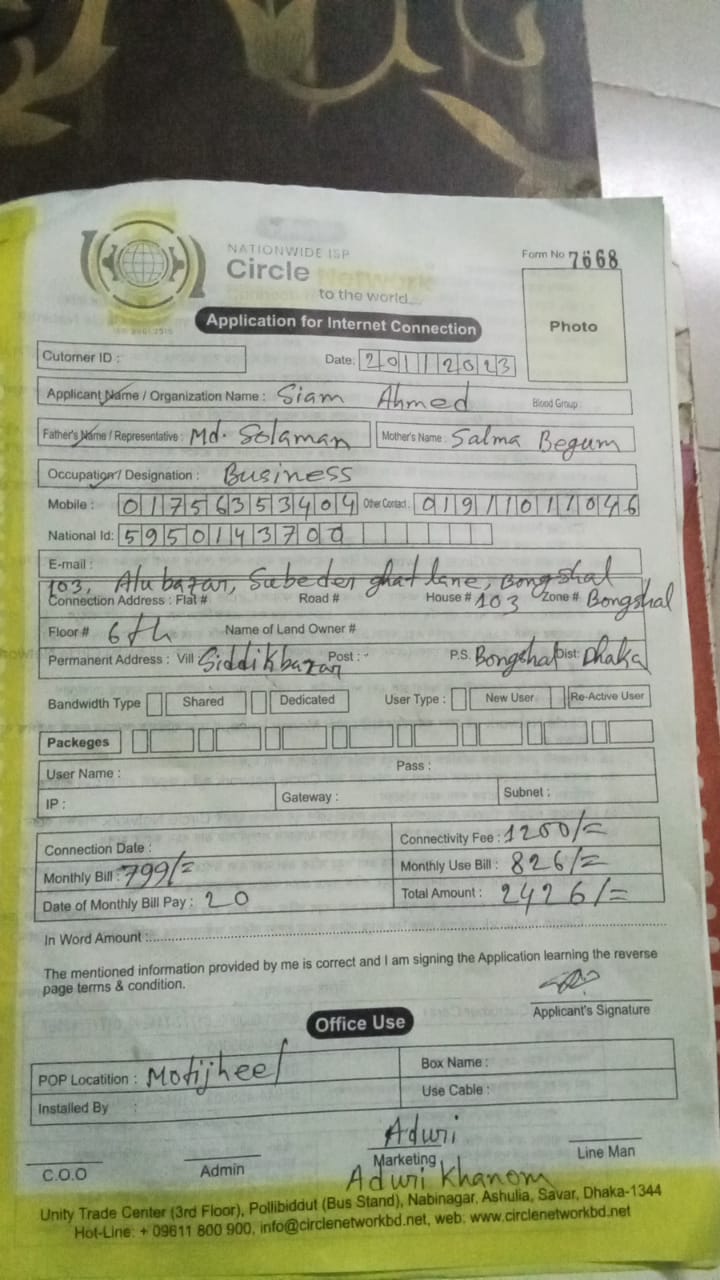 NATIONWIDE ISP
Circle Network
to the world...
Form No 7668
Photo
Application for Internet Connection
Cutomer ID :
Date: 20112023
Applicant Name / Organization Name : Siam Ahmed Blood Group
Father's Name / Representative : Md. Solaman Mother's Name : Salma Begum
Occupation / Designation : Business
Mobile : 01756353404 Other Contact : 01911011046
National Id: 5950143700
E-mail :
103, Alubazar, Subeder ghat lane, Bongshal
Connection Address : Flat # Road # House # 103 Zone # Bongshal
Floor # 6th Name of Land Owner #
Permanent Address : Vill Siddikbazar Post : - P.S. Bongshal Dist: Dhaka
Bandwidth Type Shared Dedicated User Type : New User Re-Active User
Packeges
User Name : Pass :
IP : Gateway : Subnet :
Connection Date : Connectivity Fee : 1200/=
Monthly Bill : 799/= Monthly Use Bill : 826/=
Date of Monthly Bill Pay : 20 Total Amount : 2426/=
In Word Amount :
The mentioned information provided by me is correct and I am signing the Application learning the reverse
page terms & condition.
Applicant's Signature
Office Use
POP Locatition : Motijheel Box Name :
Installed By : Use Cable :
Aduri
C.O.O Admin Marketing Line Man
Aduri Khanom
Unity Trade Center (3rd Floor), Pollibiddut (Bus Stand), Nabinagar, Ashulia, Savar, Dhaka-1344
Hot-Line: + 09611 800 900, info@circlenetworkbd.net, web: www.circlenetworkbd.net